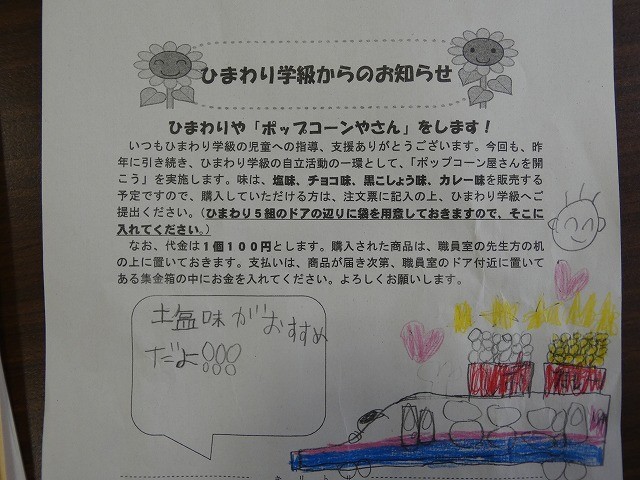 ひまわり学級からのお知らせ
ひまわりや「ポップコーンやさん」をします！
いつもひまわり学級の児童への指導、支援ありがとうございます。今回も、昨
年に引き続き、ひまわり学級の自立活動の一環として、「ポップコーン屋さんを開
こう」を実施します。味は、塩味、チョコ味、黒こしょう味、カレー味を販売する
予定ですので、購入していただける方は、注文票に記入の上、ひまわり学級へご
提出ください。（ひまわり５組のドアの辺りに袋を用意しておきますので、そこに
入れてください。）
なお、代金は１個１００円とします。購入された商品は、職員室の先生方の机
の上に置いておきます。支払いは、商品が届き次第、職員室のドア付近に置いて
ある集金箱の中にお金を入れてください。よろしくお願いします。
塩味がおすすめ
だよ!!!